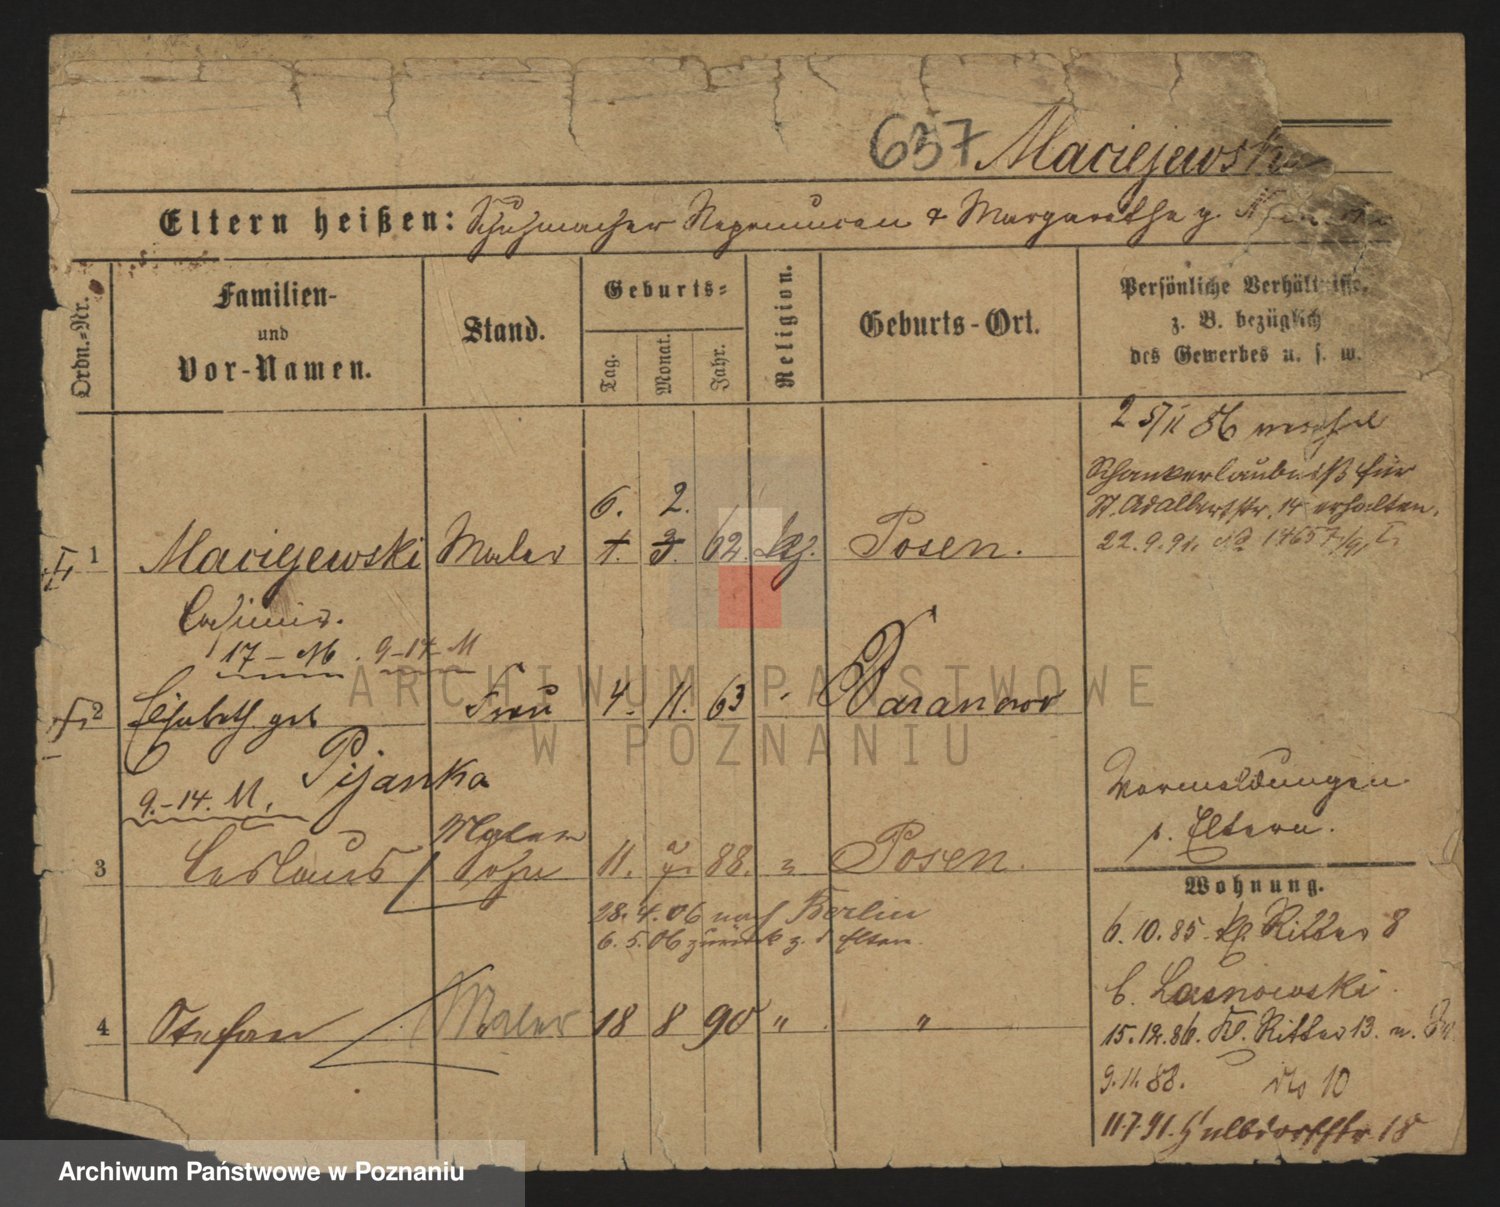 637 Maciejewski
Eltern heißen: Schuhmacher Nepomucen & Margaretha g.
Ordn.-Nr.
Familien- und Vor-Namen.
Stand.
Geburts-
Tag. Monat. Jahr.
Religion.
Geburts-Ort.
Persönliche Verhältnisse,
z. B. bezüglich
des Gewerbes u. s. w.
Schankerlaubniß für
St. Adalbertstr. 14 erhalten.
22.9.91.
6. 2.
1 Maciejewski Maler 1. 3. 62. kg. Posen.
Casimir.
17 – M. 9–14– M
2 Elisabeth geb Frau 4. 11. 63
Pijanka
9.–14. M.
Vormeldungen
s. Eltern.
Maler
3 Ceslaus Sohn 11. 7. 88. " Posen.
28.4.06 nach Berlin
6.5.06 zurück z. d Eltern.
Wohnung.
6.10.85. kl. Ritter 8
b. Lasnowski.
4 Stefan Maler 18 8 90 " "
15.12.86. Kl. Ritter 13.
9.11.88. do 10
11.7.91. Halbdorfstr. 18
ARCHIWUM PAŃSTWOWE
W POZNANIU
Archiwum Państwowe w Poznaniu